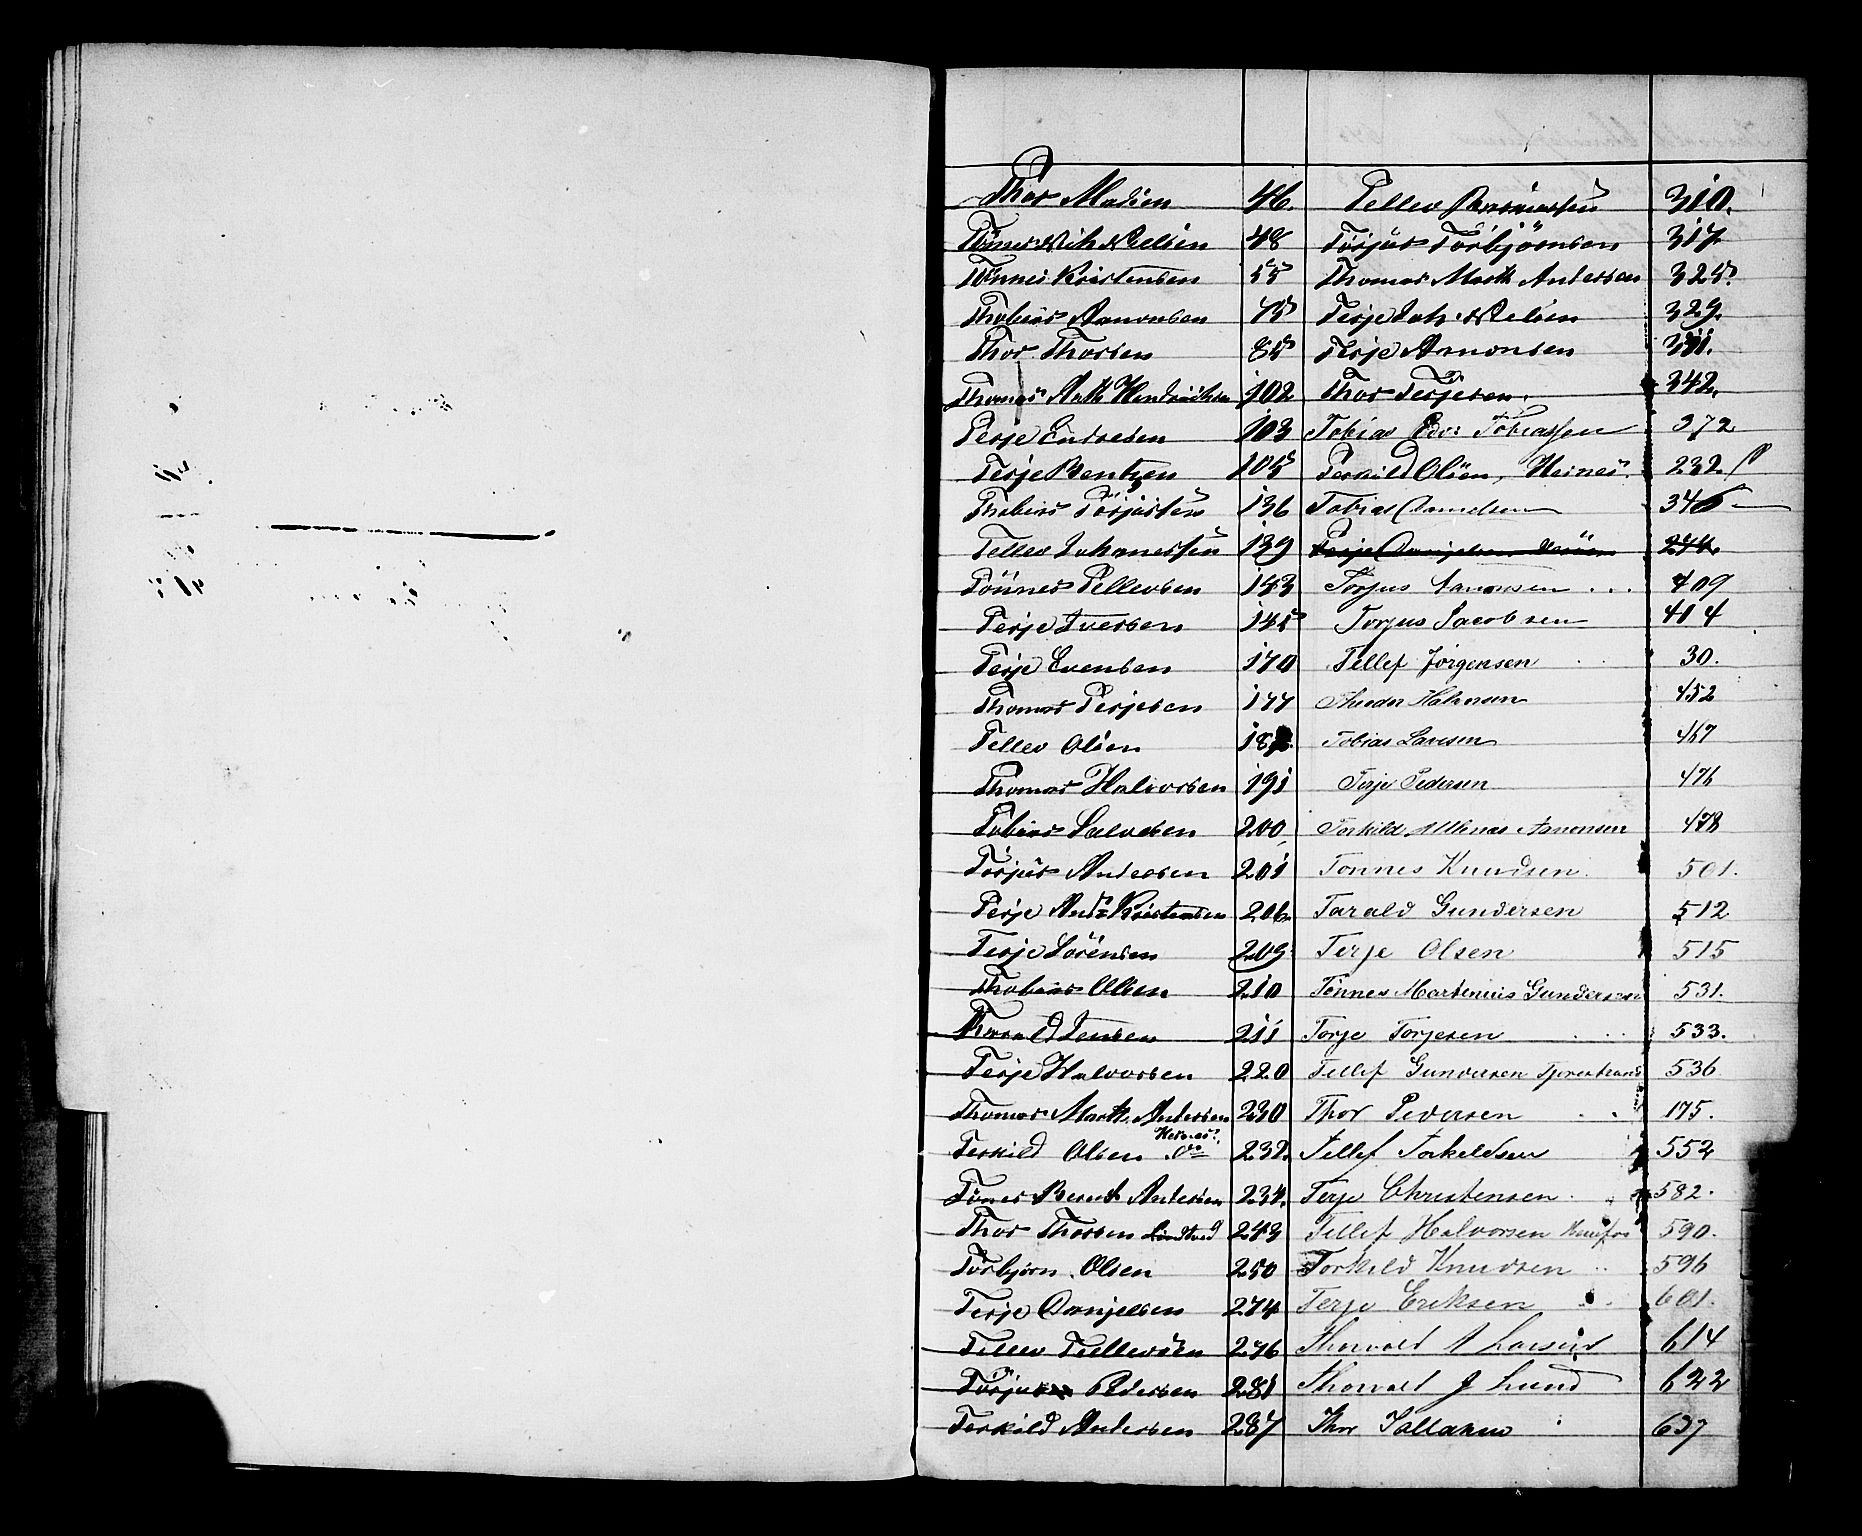 Thor Madsen 46. Tellev Rasmussen 310.
Tönnes With Nelsen 48 Torjus Torbjörnsen 317.
Tönnes Kristensen 55 Thomas Math Andersen 325.
Thobias Aanonsen 75 Terje Joh. Nelsen 329.
Thor Thorsen 85 Terje Aanonsen
Thomas Math Hendriksen 102 Thor Terjesen. 342.
Terje Endresen 103 Tobias Edv. Tobiassen 372
Terje Bentzen 105 Terkild Olsen, Heines 232
Thobias Torjussen 136 Tobias Danielsen 346
Tellev Johannessen 139 Terje Danjelsen 274.
Tönnes Tellevsen 143 Torjus Aanonsen ... 409
Terje Iversen 145 Torjus Jacobsen 414
Terje Evensen 170 Tellef Jörgensen 30.
Thomas Terjesen 177 Theodor Halvorsen 452
Tellev Olsen Tobias Larsen 467
Thomas Halvorsen 191 Terje Pedersen 476
Tobias Salvesen 200 Torkild Aanonsen 478
Torjus Andersen 201 Tonnes Knudsen. 501.
Terje And. Kristensen 206. Tarald Gundersen 512
Terje Sörensen 209. Terje Olsen 515
Thobias Olsen 210 Tönnes Martinius Gundersen 531.
Jensen 211 Terje Torjesen 533.
Terje Halvorsen 220 Tellef Gundersen Tjorestrand 536
Thomas Math. Andersen 230 Thor Pedersen 175.
Terkild Olsen Heines 232. Tellef Torkeldsen 552
Tönnes Berent Andersen 234. Terje Christensen. 582.
Thor Thorsen Lindtved 243 Tellef Halvorsen 590.
Torbjörn Olsen 250 Torkild Knudsen 596
Terje Danjelsen 274 Terje Eriksen 601.
Tellev Tellevsen 276 Thorvald A Larsen 614
Torjus Pedersen 281 Thorvald J Lund 622
Terkild Andersen 287 Thor Tallaksen 637